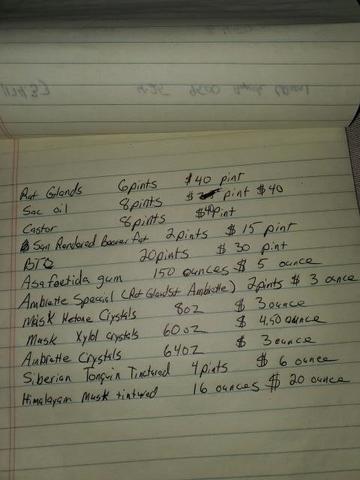 Rat Glands 6 pints $40 pint
Sac oil 8 pints $ pint $40
Castor 8 pints $40 pint
Sun Rendered Beaver Fat 2 pints $15 pint
BTO 20 pints $30 pint
Asafoetida gum 150 ounces $5 ounce
Ambrette Special (Rat Glands + Ambrette) 2 pints $3 ounce
Musk Ketone Crystals 8oz $3 ounce
Musk Xylol crystals 60oz $4.50 ounce
Ambrette Crystals 64oz $3 ounce
Siberian Tonquin Tinctured 4 pints $6 ounce
Himalayan Musk tinctured 16 ounces $20 ounce